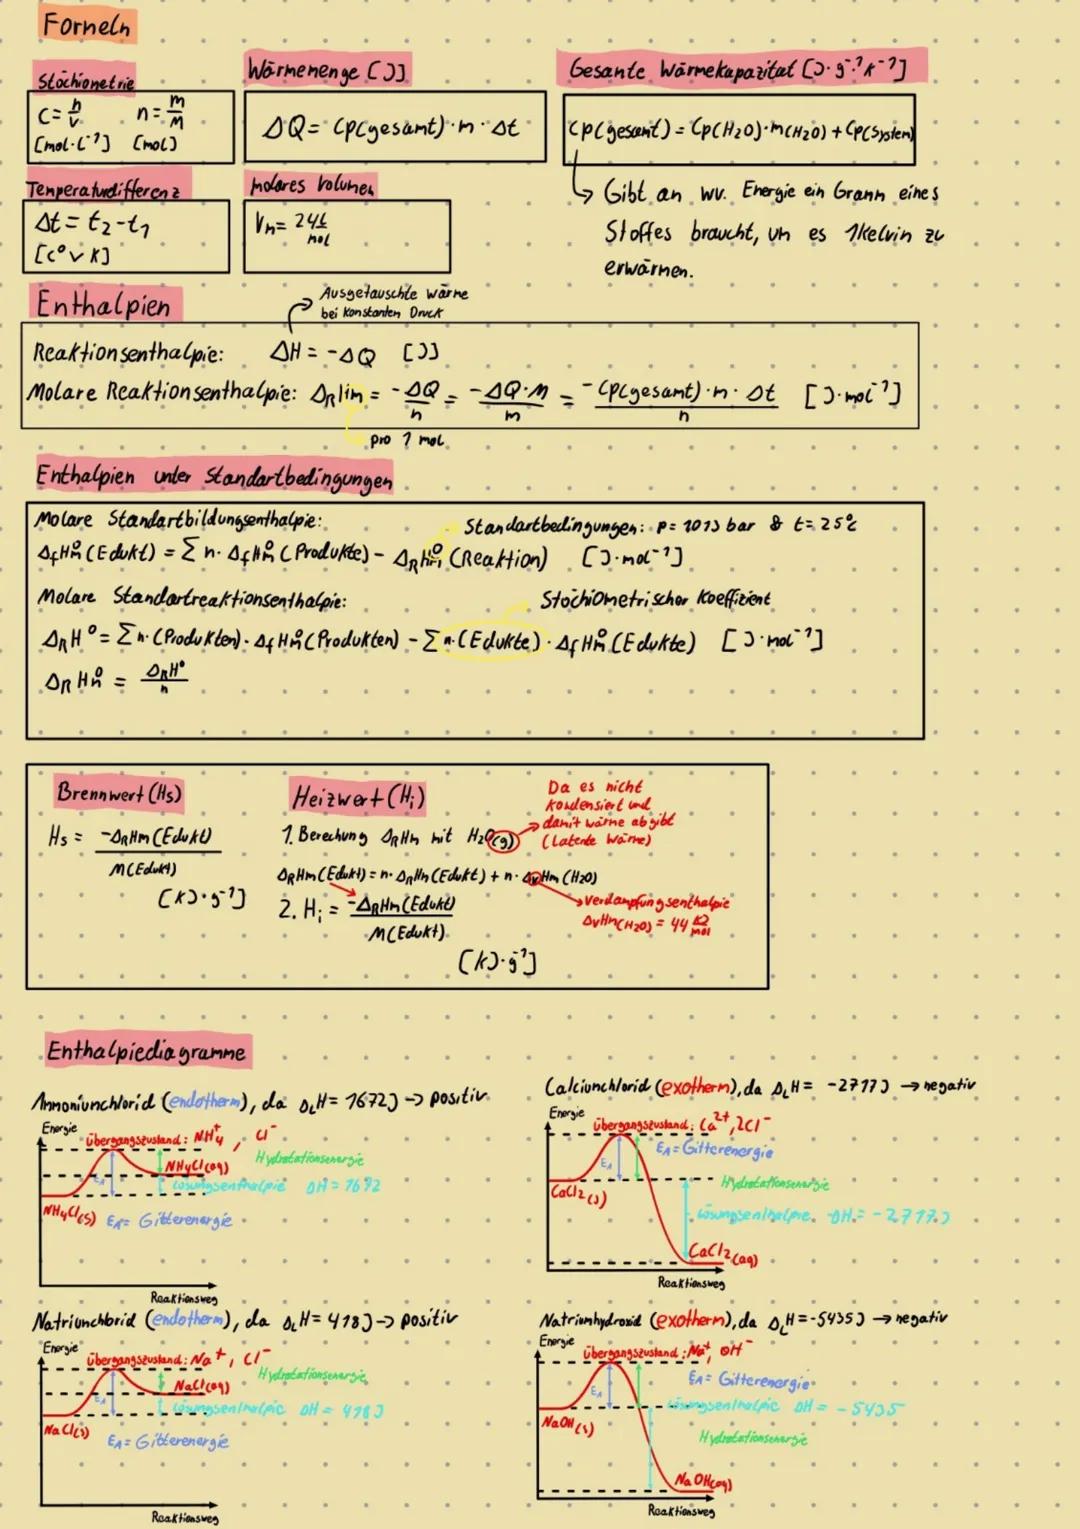 Formeln
Stöchiometrie
c = n/V    n = m/M
[mol·L⁻¹]  [mol]
Wärmemenge [J]
ΔQ = Cp(gesamt) · m · Δt
Gesamte Wärmekapazität [J·g⁻¹·K⁻¹]
Cp(gesamt) = Cp(H2O)·m(H2O) + Cp(System)
Gibt an wv. Energie ein Gramm eines
Stoffes braucht, um es 1 kelvin zu
erwärmen.
Temperaturdifferenz
Δt = t₂ - t₁
[C° v K]
molares Volumen
Vm = 24 L/mol
Enthalpien
Ausgetauschte Wärme
bei konstanten Druck
Reaktionsenthalpie: ΔH = -ΔQ [J]
Molare Reaktionsenthalpie: ΔRHm = -ΔQ/n = -ΔQ·M/m = -Cp(gesamt)·m·Δt/n [J·mol⁻¹]
pro 1 mol
Enthalpien unter Standartbedingungen
Molare Standartbildungsenthalpie:
Standartbedingungen: p = 1013 bar & t = 25°C
ΔfHm⁰ (Edukt) = Σ n · ΔfHm⁰ (Produkte) - ΔRHm⁰ (Reaktion) [J·mol⁻¹]
Molare Standartreaktionsenthalpie:
Stöchiometrischer Koeffizient
ΔRH⁰ = Σ n·(Produkten) · ΔfHm⁰ (Produkten) - Σ n·(Edukte) · ΔfHm⁰ (Edukte) [J·mol⁻¹]
ΔRHm⁰ = ΔRH⁰/n
Brennwert (Hs)
Hs = -ΔRHm (Edukt)/M(Edukt)
[KJ·g⁻¹]
Heizwert (Hi)
1. Berechung ΔRHm mit H2O(g)
Da es nicht
kondensiert und
damit wärme abgibt
(Latente Wärme)
ΔRHm (Edukt) = n · ΔRHm (Edukt) + n · ΔvHm (H2O)
2. Hi = -ΔRHm (Edukt)/M(Edukt)
Verdampfungsenthalpie
ΔvHm(H2O) = 44 KJ/mol
[KJ·g⁻¹]
Enthalpiediagramme
Ammoniumchlorid (endotherm), da ΔLH = 1672J → positiv
Energie
Übergangszustand: NH₄⁺, Cl⁻
Hydratationsenergie
NH4Cl(aq)
EA
Lösungsenthalpie ΔH = 1672
NH4Cl(s)
EA = Gitterenergie
Reaktionsweg
Calciumchlorid (exotherm), da ΔLH = -2717J → negativ
Energie
Übergangszustand: Ca²⁺, 2Cl⁻
EA = Gitterenergie
EA
Hydratationsenergie
CaCl2(s)
Lösungsenthalpie ΔH = -2717J
CaCl2(aq)
Reaktionsweg
Natriumchlorid (endotherm), da ΔLH = 418J → positiv
Energie
Übergangszustand: Na⁺, Cl⁻
Hydratationsenergie
NaCl(aq)
EA
Lösungsenthalpie ΔH = 418J
NaCl(s)
EA = Gitterenergie
Reaktionsweg
Natriumhydroxid (exotherm), da ΔLH = -5435J → negativ
Energie
Übergangszustand: Na⁺, OH⁻
EA = Gitterenergie
EA
Lösungsenthalpie ΔH = -5435
NaOH(s)
Hydratationsenergie
NaOH(aq)
Reaktionsweg